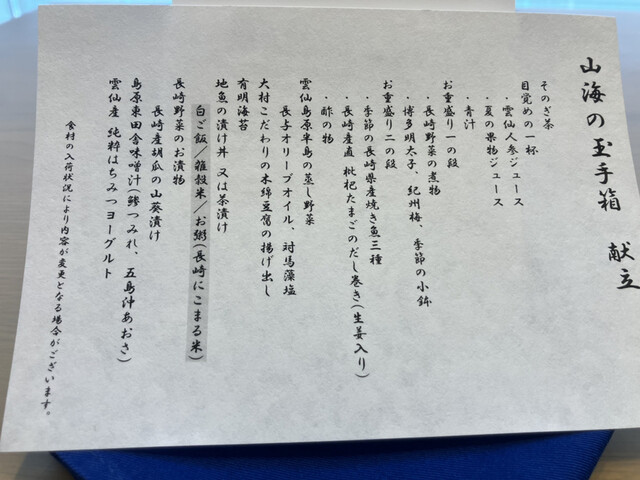 山海の玉手箱　献立
そのぎ茶
目覚めの一杯
・雲仙人参ジュース
・夏の果物ジュース
・青汁
お重盛り一の段
・長崎野菜の煮物
・博多明太子、紀州梅、季節の小鉢
お重盛り二の段
・季節の長崎県産焼き魚三種
・長崎産直 枇杷たまごのだし巻き(生姜入り)
・酢の物
雲仙島原半島の蒸し野菜
長与オリーブオイル、対馬藻塩
大村こだわりの木綿豆腐の揚げ出し
有明海苔
地魚の漬け丼 又は茶漬け
白ご飯／雑穀米／お粥(長崎にこまる米)
長崎野菜のお漬物
長崎産胡瓜の山葵漬け
島原東田舎味噌汁(鰺つみれ、五島沖あおさ)
雲仙産 純粋はちみつヨーグルト
食材の入荷状況により内容が変更となる場合がございます。